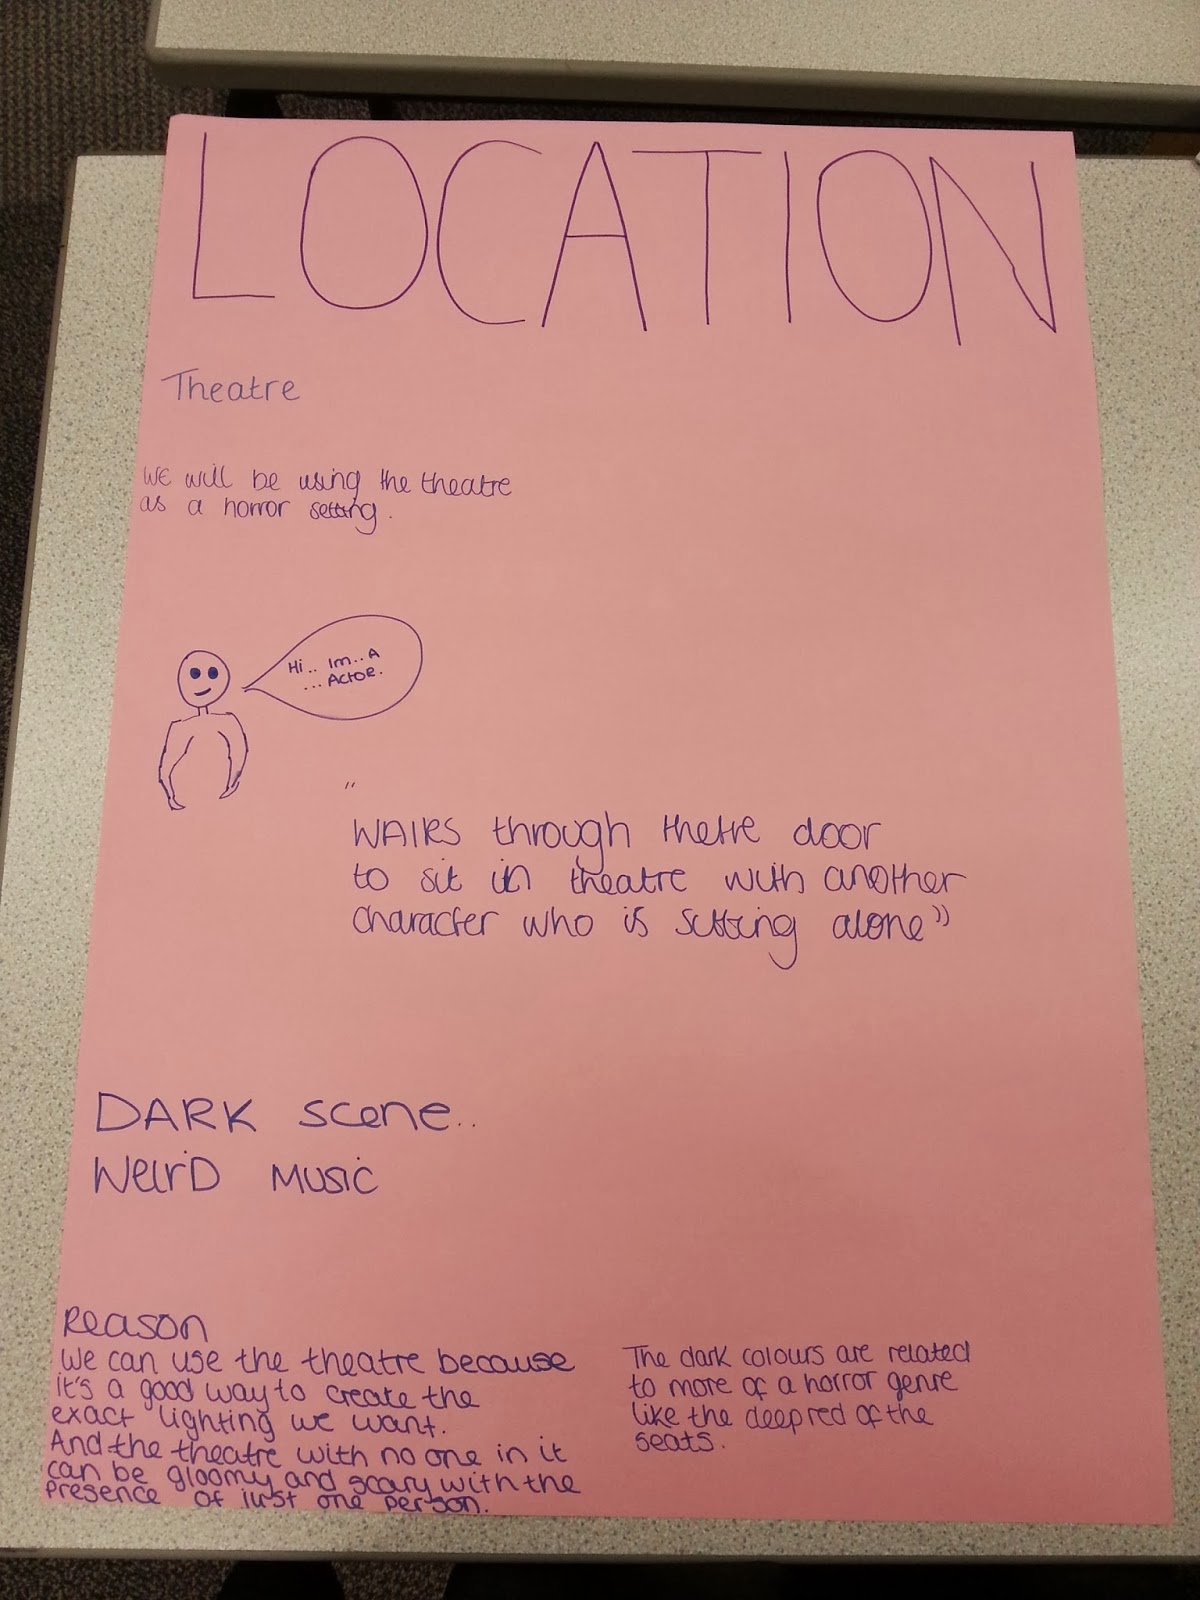 LOCATION
Theatre
We will be using the theatre
as a horror setting.
Hi.. Im..A
...Actor.
"
WAlks through thetre door
to sit in theatre with another
character who is sitting alone"
DARK scene..
WeirD MUSiC
Reason
We can use the theatre because
it's a good way to create the
exact lighting we want.
And the theatre with no one in it
can be gloomy and scary with the
presence of just one person.
The dark colours are related
to more of a horror genre
like the deep red of the
seats.